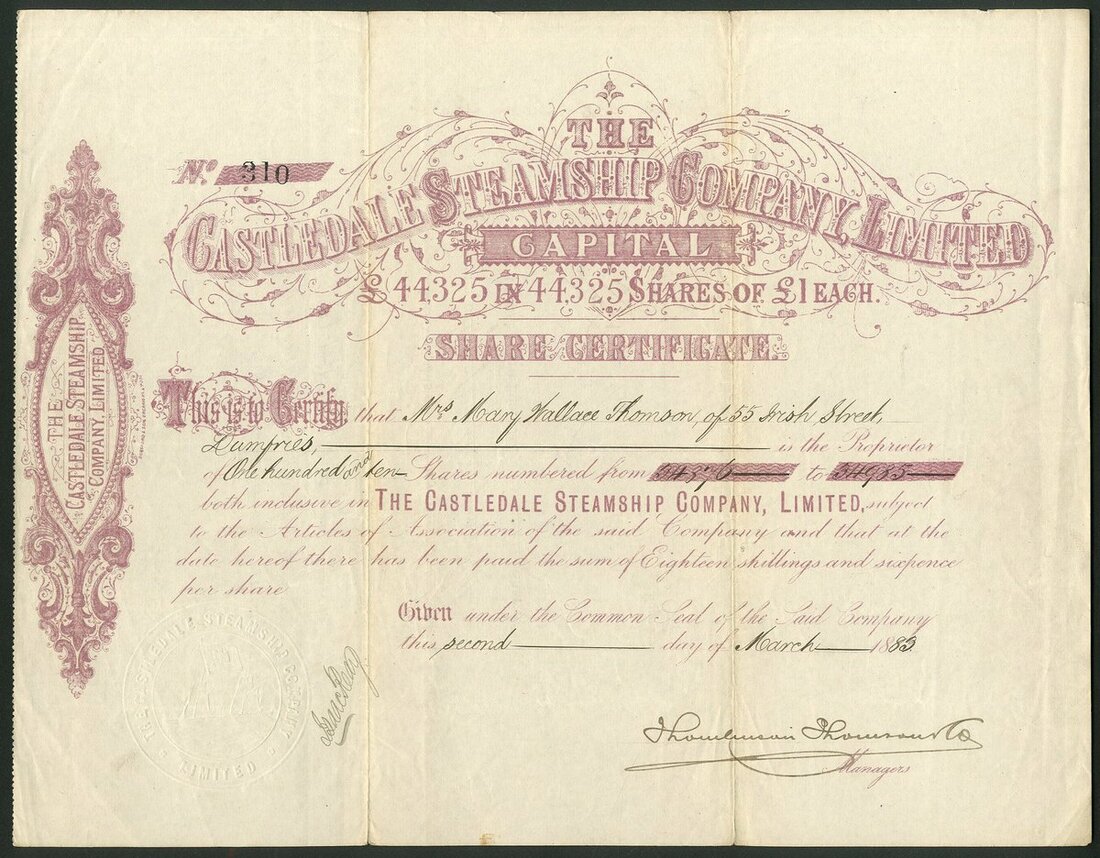 No. 310
THE
CASTLEDALE STEAMSHIP COMPANY, LIMITED
CAPITAL
£44325 IN 44325 SHARES OF £1 EACH.
SHARE CERTIFICATE.
This is to Certify that Mrs Mary Wallace Thomson, of 55 Irish Street,
Dumfries, is the Proprietor
of One hundred and ten Shares numbered from to
both inclusive in THE CASTLEDALE STEAMSHIP COMPANY, LIMITED, subject
to the Articles of Association of the said Company and that at the
date hereof there has been paid the sum of Eighteen shillings and sixpence
per share
Given under the Common Seal of the Said Company
this second day of March 1883.
Thomlinson Thomson & Co
Managers
THE
CASTLEDALE STEAMSHIP
COMPANY, LIMITED
THE CASTLEDALE STEAMSHIP COMPANY
LIMITED